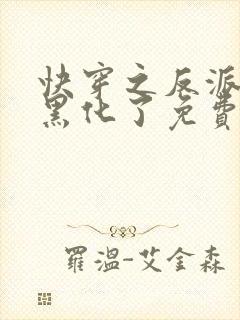 快穿之反派
黑化了免費
羅溫-艾金森